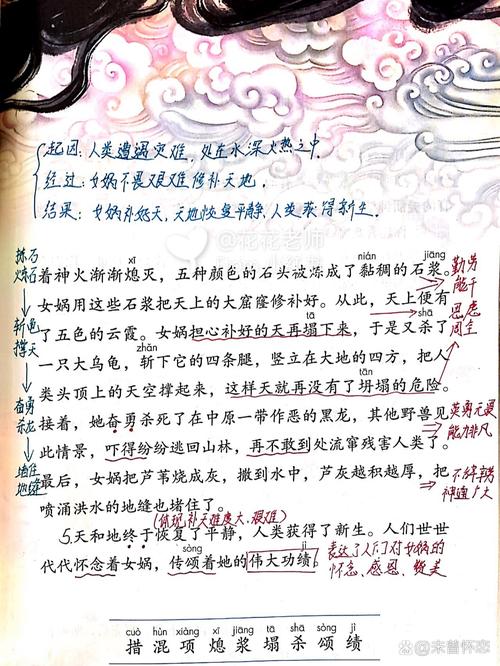 起因：人类遭遇灾难，处在水深火热之中。
经过：女娲不畏艰难修补天地。
结果：女娲补好天，天地恢复平静，人类获得新生。
@花花老师
拣石
炼石
xī nián jiāng
着神火渐渐熄灭，五种颜色的石头被炼成了黏稠的石浆。
勤劳
能干
女娲用这些石浆把天上的大窟窿修补好。从此，天上便有
斩龟
撑天
tā shā
了五色的云霞。女娲担心补好的天再塌下来，于是又杀了
思虑
周全
zhǎn
一只大乌龟，斩下它的四条腿，竖立在大地的四方，把人
tān
类头顶上的天空撑起来，这样天就再没有了坍塌的危险。
奋勇
杀龙
接着，她奋勇杀死了在中原一带作恶的黑龙，其他野兽见
英勇无畏
能力非凡
此情景，吓得纷纷逃回山林，再不敢到处流窜残害人类了。
堵住
地缝
最后，女娲把芦苇烧成灰，撒到水中，芦灰越积越厚，把
不辞辛劳
神通广大
喷涌洪水的地缝也堵住了。
(体现补天难度大、艰难)
5.天和地终于恢复了平静，人类获得了新生。人们世世
sòng jì
代代怀念着女娲，传颂着她的伟大功绩。
表达了人们对女娲的
怀念、感恩、赞美
cuò hùn xiàng xī jiāng tā shā sòng jì
措 混 项 熄 浆 塌 杀 颂 绩
@来普怀恋